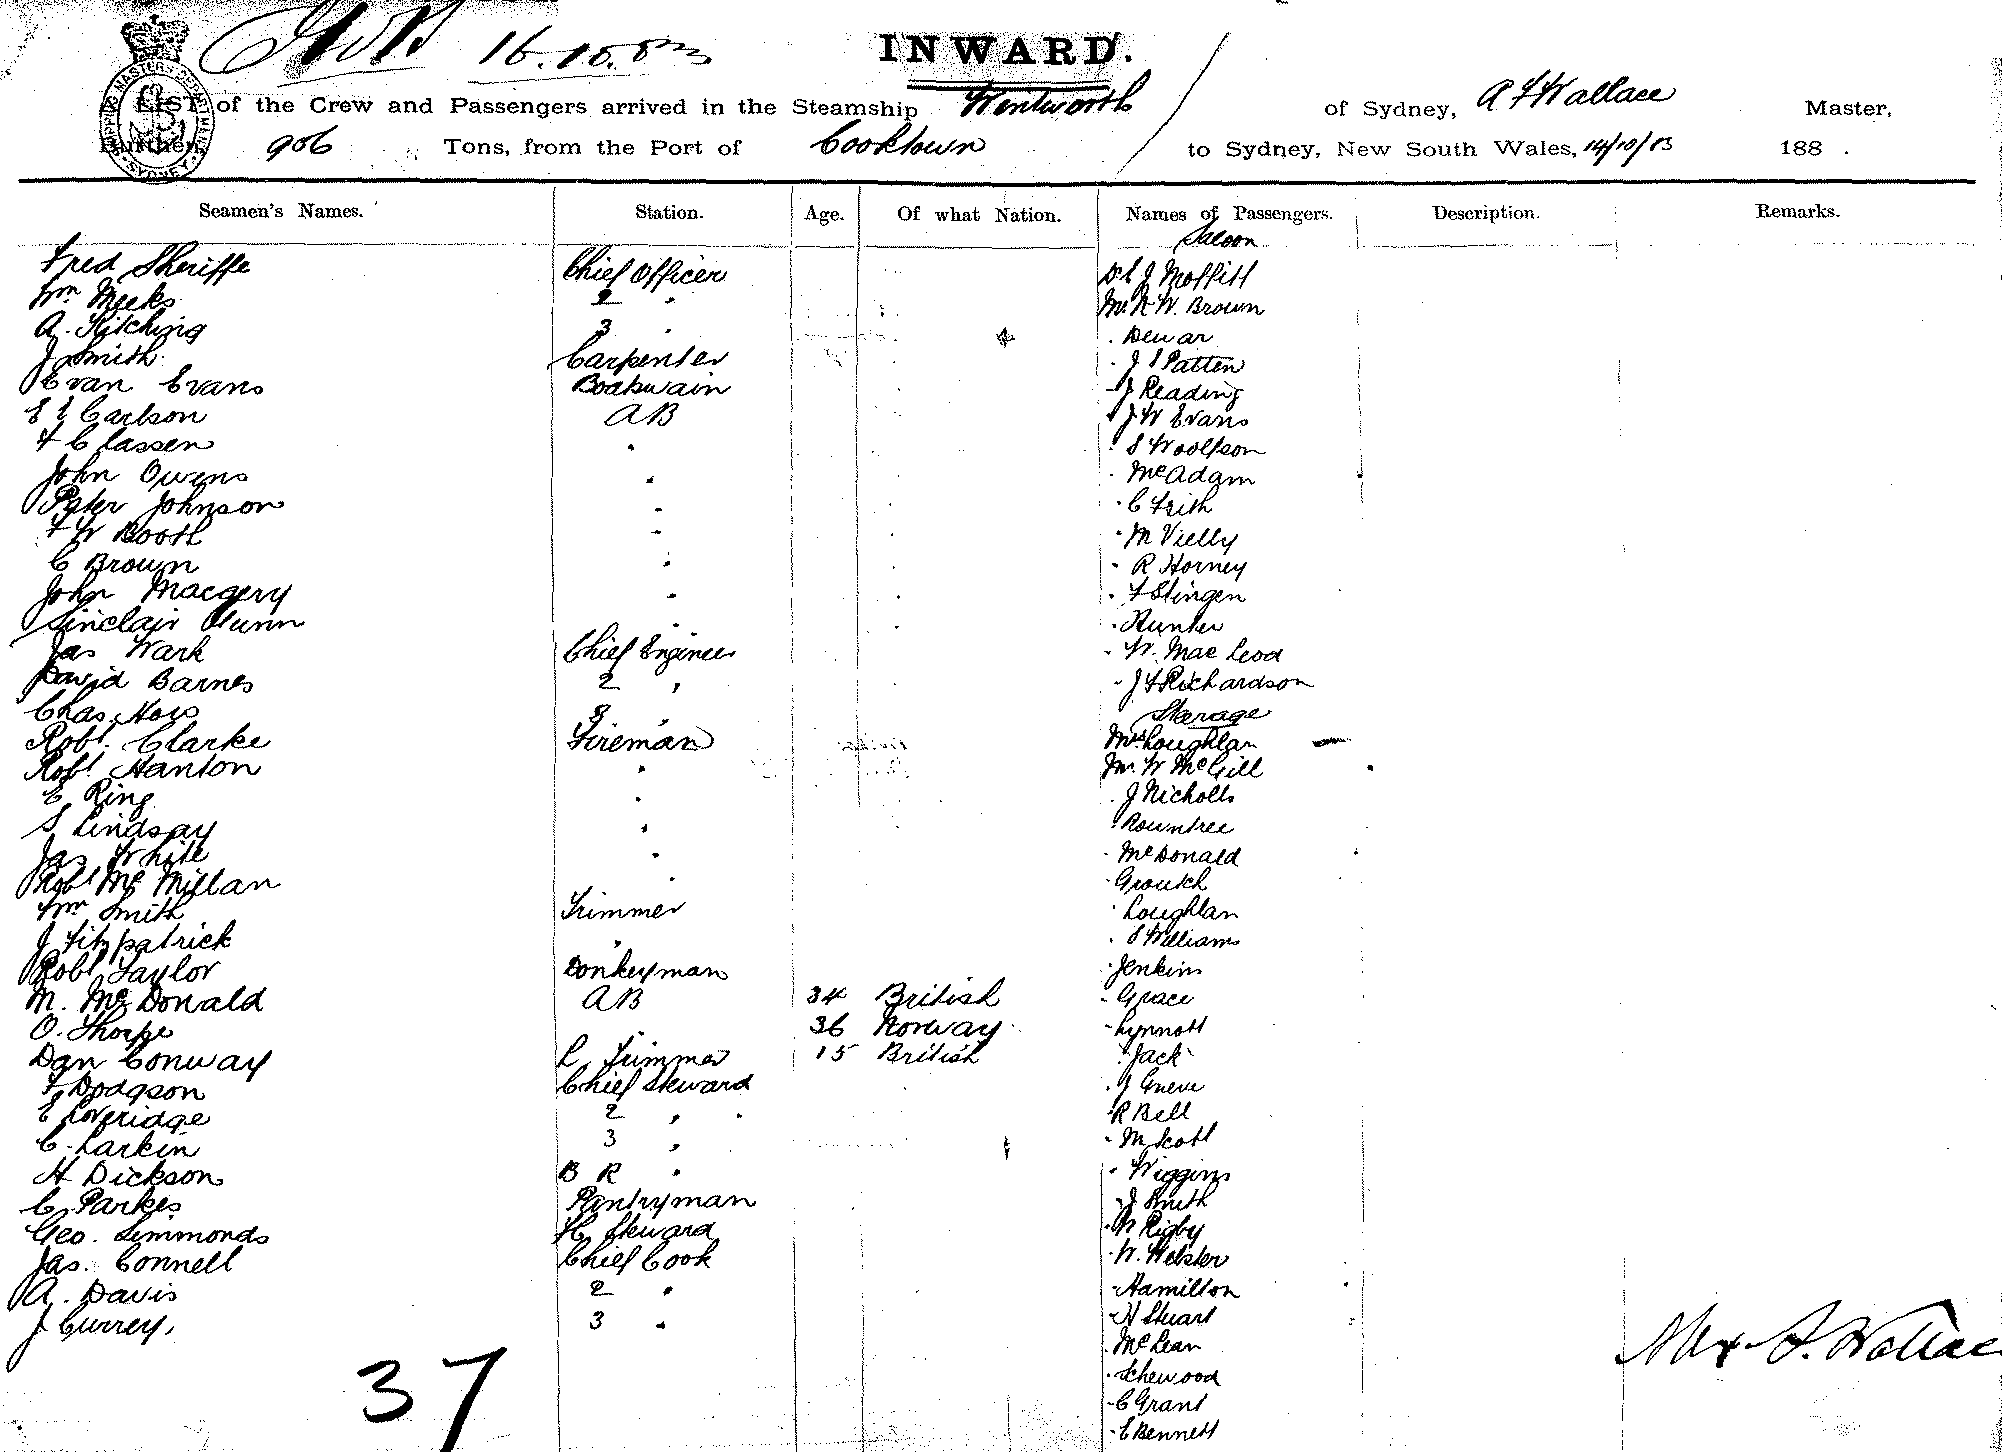 16.10.83
INWARD.
LIST of the Crew and Passengers arrived in the Steamship Wentworth of Sydney, A F Wallace Master,
Burthen, 906 Tons, from the Port of Cooktown to Sydney, New South Wales, 14/10/83 188 .
SHIPPING MASTER'S DEPARTMENT SYDNEY
Seamen's Names. Station. Age. Of what Nation. Names of Passengers. Description. Remarks.
Saloon
Fred Sheriffe Chief Officer Dr J Moffitt
Wm Meeks 2 " Mr R W. Brown
A. Kitching 3 " " Dewar
J Smith Carpenter " J S Patten
Evan Evans Boatswain " J Reading
E E Carlson AB " J W Evans
F Classen " " S Woolfson
John Owens " " McAdam
Peter Johnson " " C Frith
F W Booth " " M Vielly
C Brown " " R Horney
John Macgery " " F Stingen
Sinclair Gunn " " Hunter
Jas Wark Chief Engineer " W. Mac Leod
David Barnes 2 " " J F Richardson
Chas. How 3 " Steerage
Robt. Clarke Fireman Mrs Loughlan
Robt Hanton " Mr. W McGill
E Ring " " J Nicholls
S Lindsay " " Rountree
Jas White " " McDonald
Robt Mc Millan " " Groutch
Wm Smith Trimmer " Loughlan
J Fitzpatrick " " S Williams
Robt Taylor Donkeyman " Jenkins
M. Mc Donald AB 34 British " Grace
O. Thorpe " 36 Norway " Lynnott
Dan Conway L Trimmer 15 British " Jack
F Dodgson Chief Steward " J Greve
E Loveridge 2 " " R Bell
C. Larkin 3 " " M Scott
H Dickson B R " " Wiggins
C. Parkes Pantryman " J Smith
Geo. Simmonds H Steward " W Rigby
Jas. Connell Chief Cook " W. Webster
A. Davis 2 " " Hamilton
J Currey, 3 " " H Stuart
" McLean
37 Alex. F. Wallace
" Schewood
" C Grant
" E Bennett